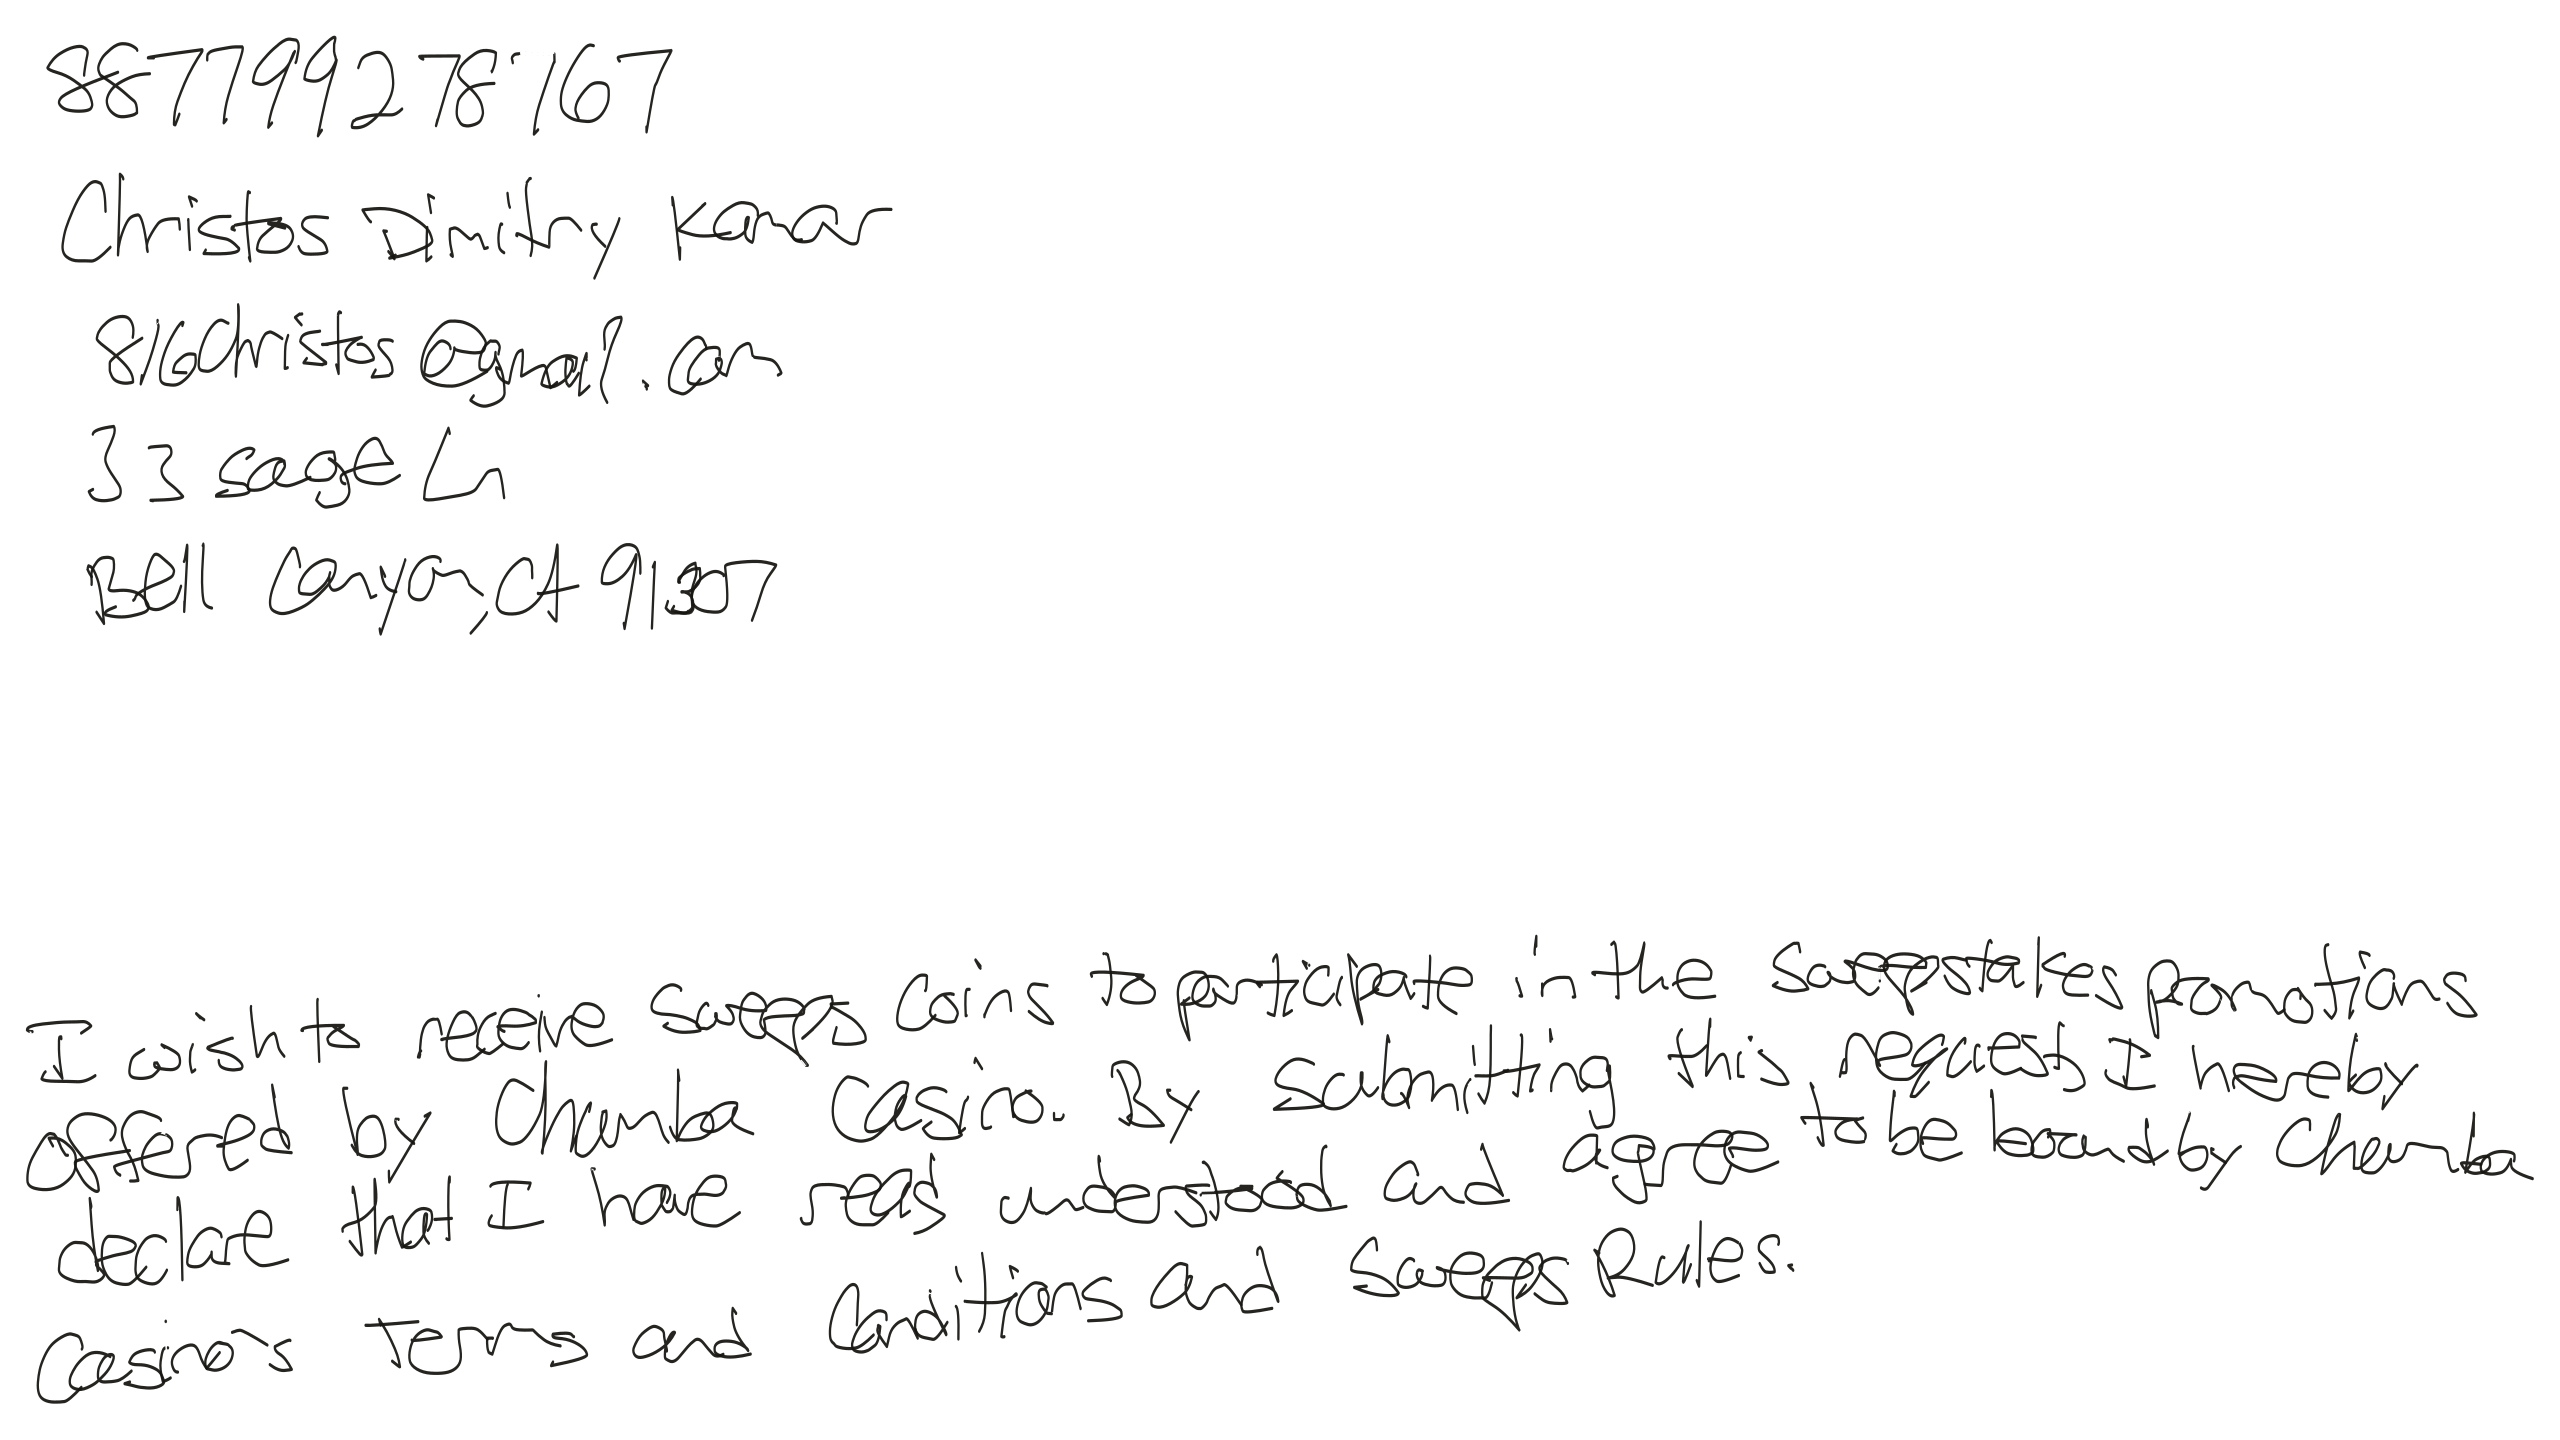 887799278167
Christos Dimitry Kanar
816christos@gmail.com
33 sage Ln
Bell Canyon, CA 91307
I wish to receive sweeps coins to participate in the sweepstakes promotions
offered by Chumba Casino. By submitting this request, I hereby
declare that I have read, understood and agree to be bound by Chumba
Casino's Terms and Conditions and Sweeps Rules.